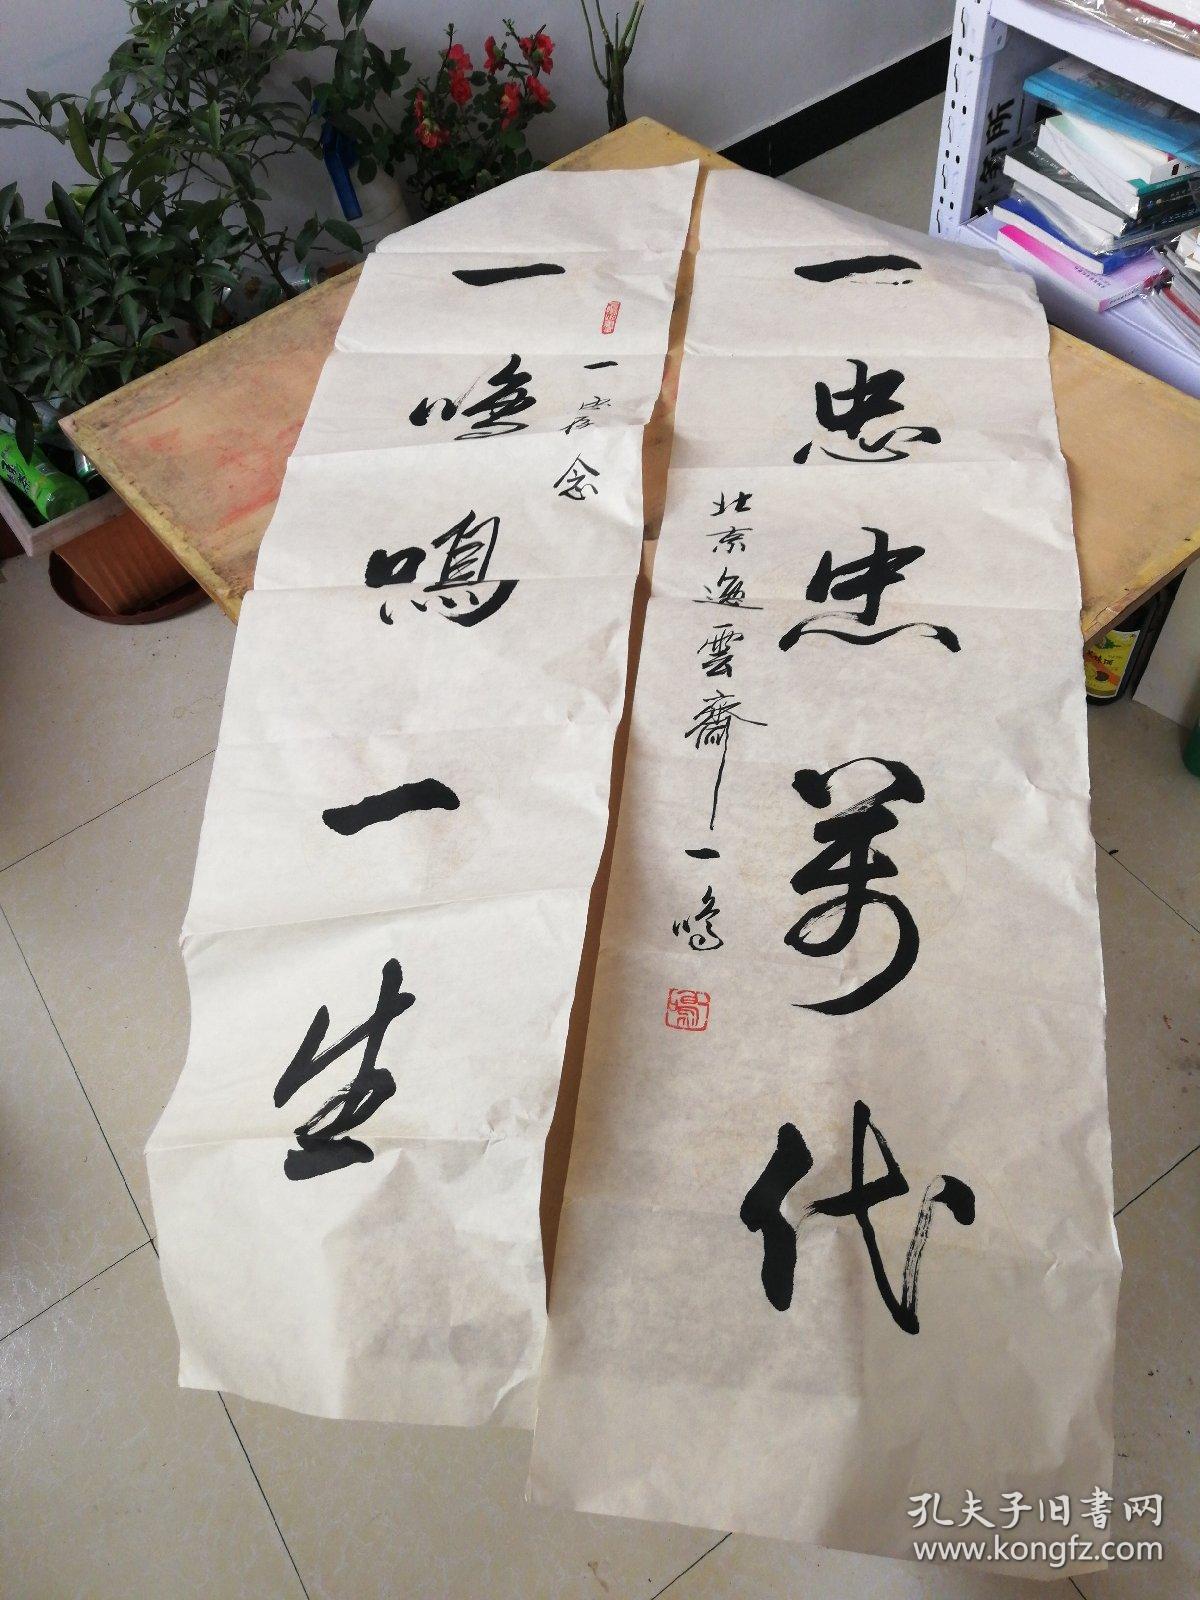 一忠忠萬代
北京逸雲齋一鳴
一鳴鳴一生
念
孔夫子旧书网
www.kongfz.com